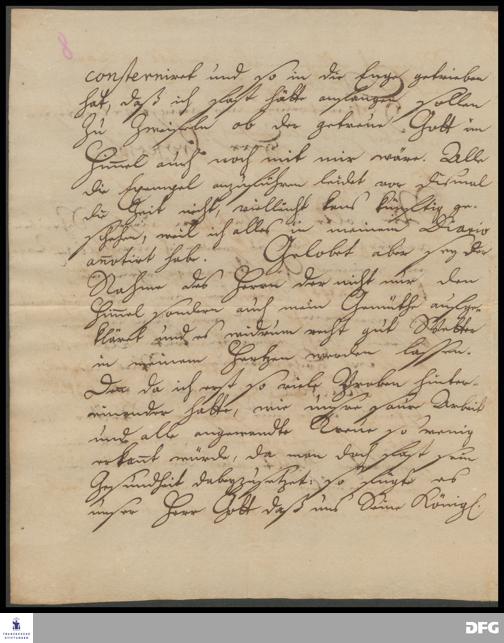 8
consterniret und so in die Enge getrieben
hat, daß ich fast hätte anfangen sollen
zu zweifeln ob der getreue Gott im
Himmel auch noch mit mir wäre. Alle
die Exempel anzuführen leidet vor diesmal
die Zeit nicht, vielleicht kans künftig ge-
schehen, weil ich alles in meinem Diario
annotiret habe. Gelobet aber sey der
Nahme des Herrn der nicht nur den
Himmel sondern auch mein Gemüthe aufge-
kläret und es wiedrum recht gut Wetter
in meinem Hertzen werden lassen.
Den da ich erst so viele Proben hinter-
einander hatte, wie unsre saure Arbeit
und alle angewandte Treue so wenig
erkannt würde, da man doch fast sein
Gesundheit dabeyzusetzet: so fügte es
unser Herr Gott daß uns Seine Königl.
FRANCKESCHE
STIFTUNGEN
DFG